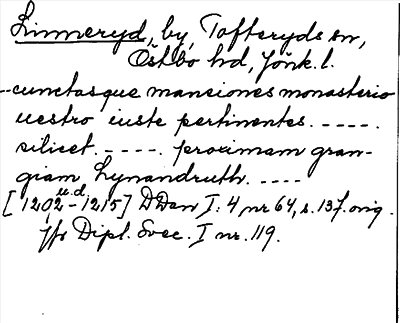 Linneryd, by, Tofteryds sn,
Östbo hd, Jönk. l.
--cunctasque mansiones monasterio
uestro iuste pertinentes. ----.
silicet. ----. proximam gran-
giam Lynandruth. ----
[1202 u.d. -1215] DDan I:4 nr 64, s. 137. orig.
jfr Dipl. Svec. I nr. 119.